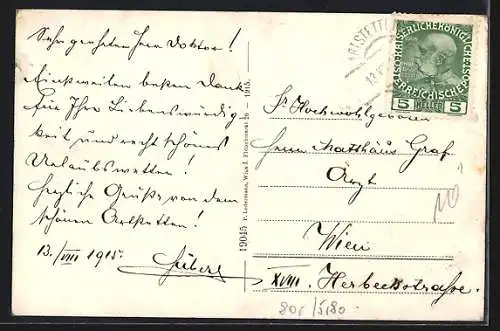 Sehr geehrter Herr Doktor!
Einstweilen besten Dank
für Ihre Liebenswürdig
keit und recht schönes
Urlaubswetter!
herzliche Grüße von dem
schönen Artstetten!
13./VIII 1915.
19045 P. Ledermann, Wien I. Fleischmarkt 20 - 1915.
ARTSTETTEN
KAISERLICHE KÖNIGLICHE
ÖSTERREICHISCHE POST
5 HELLER 5
Sr Hochwohlgeboren
Herrn Matthäus Graf
Arzt
Wien
XVIII. Herbeckstraße.